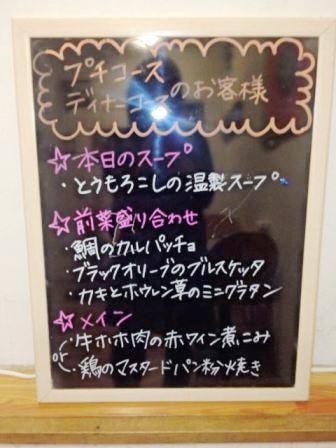 プチコース
ディナーコースのお客様
☆本日のスープ
・とうもろこしの温製スープ
☆前菜盛り合わせ
・鯛のカルパッチョ
・ブラックオリーブのブルスケッタ
・カキとホウレン草のミニグラタン
☆メイン
・牛ホホ肉の赤ワイン煮こみ
or
・鶏のマスタードパン粉焼き